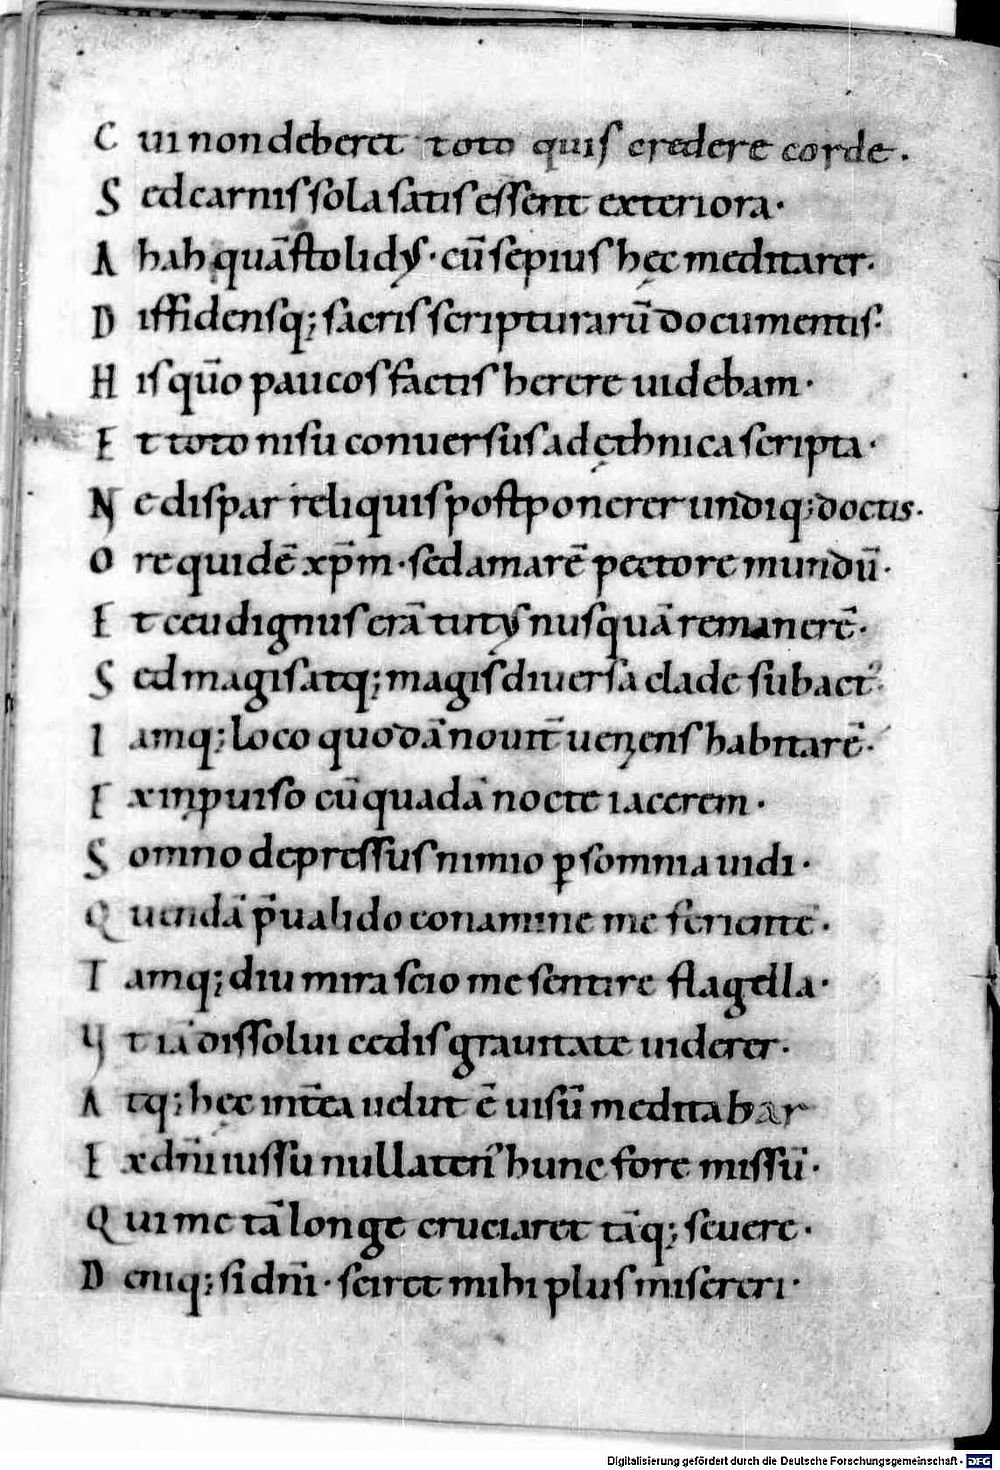 C ui non deberet toto quis credere corde.
S ed carnis sola satis essent exteriora.
A hah quā stolidꝰ. cū sepius hęc meditarer.
D iffidensq; sacris scripturarū documentis.
H is quū paucos factis herere uidebam.
E t toto nisu conuersus ad ęthnica scripta.
N e dispar reliquis postponerer undiq; doctus.
O re quidē xp̄m. sed amarē pectore mundū.
E t ceu dignus erā tutꝰ nusquā remanerē.
S ed magis atq; magis diuersa clade subactꝰ.
I amq; loco quodā nouit ueniens habitarē.
E x inpuiso cū quadā nocte iacerem.
S omno depressus nimio ꝑ somnia uidi.
Q uendā p̄ualido conamine me feriente.
T amq; diu mira scio me sentire flagella.
U t iā dissolui cedis grauitate uiderer.
A tq; hęc intēa uelut ē uisū meditabar
E x dn̄i iussu nullaten' hunc fore missū.
Q ui me tā longe cruciaret tāq; seuere.
D eniq; si dn̄i. sciret mihi plus misereri.
Digitalisierung gefördert durch die Deutsche Forschungsgemeinschaft - DFG